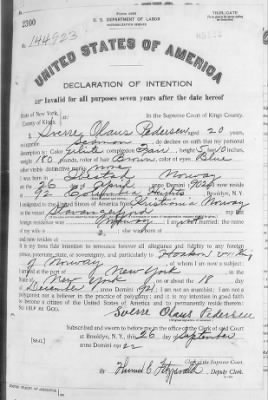 2300
U. S. DEPARTMENT OF LABOR
TRIPLICATE
144923
UNITED STATES OF AMERICA
DECLARATION OF INTENTION
Invalid for all purposes seven years after the date hereof
State of New York,
County of Kings,
In the Supreme Court of Kings County.
I, Sverre Olaus Pedersen, aged 20 years,
occupation Seaman, do declare on oath that my personal
description is: Color White, complexion Fair, height 5 feet inches,
weight 180 pounds, color of hair Brown, color of eyes Blue
other visible distinctive marks
I was born in Norway
on the 26 day of April, anno Domini; I now reside
at 92 Columbia Heights, Brooklyn, N.Y.
I emigrated to the United States of America from Norway
on the vessel Stavangerfjord; my last
foreign residence was Norway; I am not married; the name
of my wife is; she was born at
and now resides at
It is my bona fide intention to renounce forever all allegiance and fidelity to any foreign
prince, potentate, state, or sovereignty, and particularly to Haakon VII King
of Norway, of whom I am now a subject;
I arrived at the port of New York, in the
State of New York, on or about the 18 day
of December, anno Domini; I am not an anarchist; I am not a
polygamist nor a believer in the practice of polygamy; and it is my intention in good faith
to become a citizen of the United States of America and to permanently reside therein:
SO HELP ME GOD.
Sverre Olaus Pedersen
Subscribed and sworn to before me in the office of the Clerk of said Court
at Brooklyn, N.Y., this 26 day of September
anno Domini 1922
[SEAL]
Clerk of the Supreme Court.
By, Deputy Clerk.